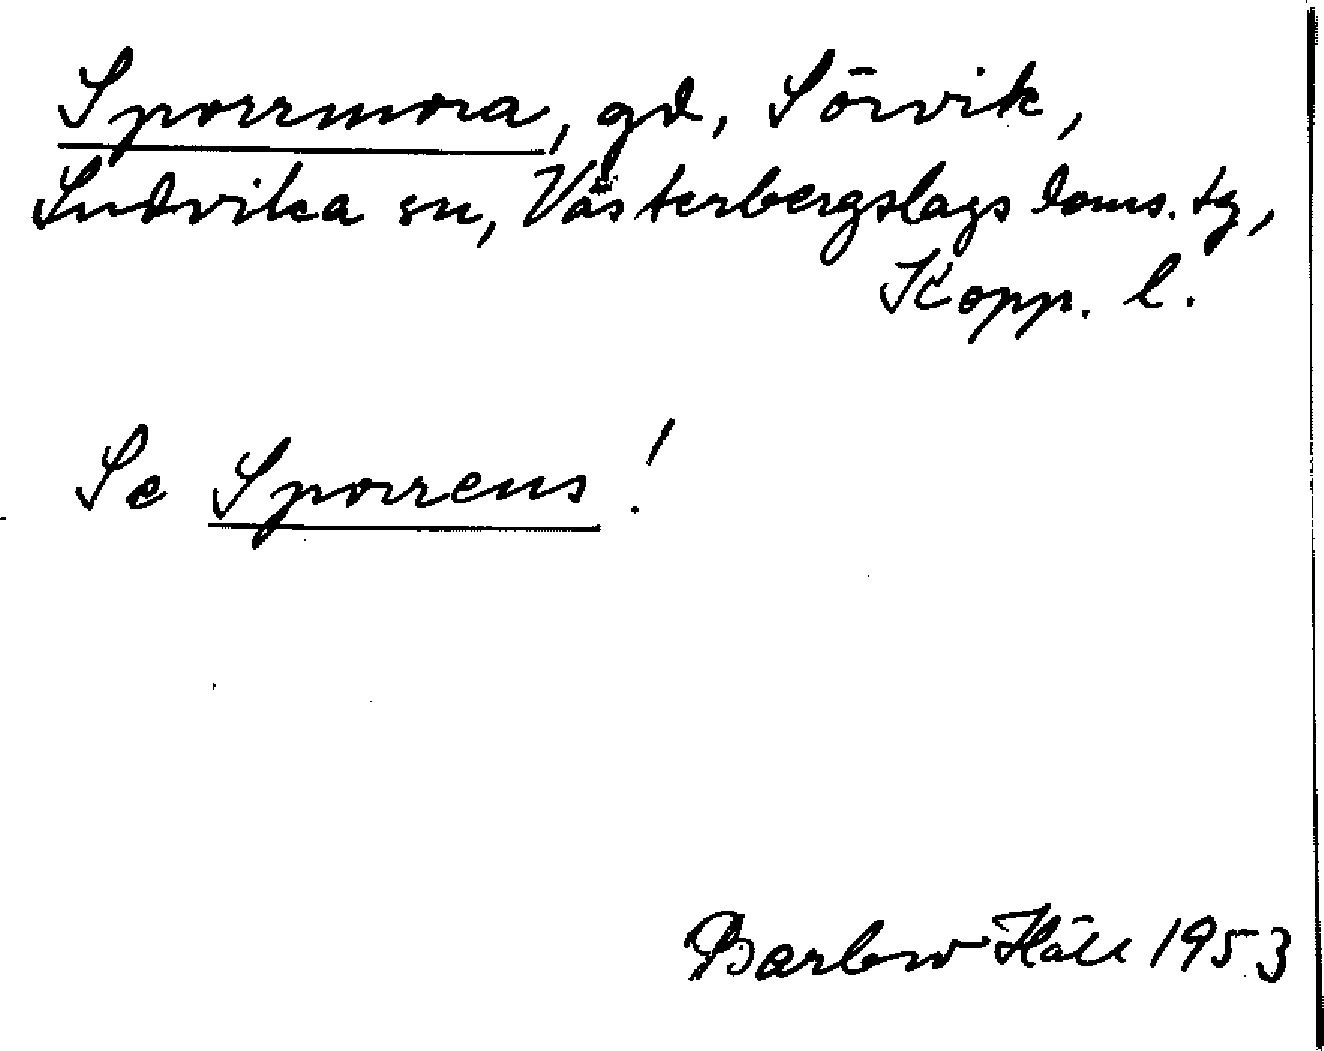 Sporrmora, gd, Sörvik,
Ludvika sn, Västerbergslags doms. tg,
Kopp. l.
Se Sporrens!
1953